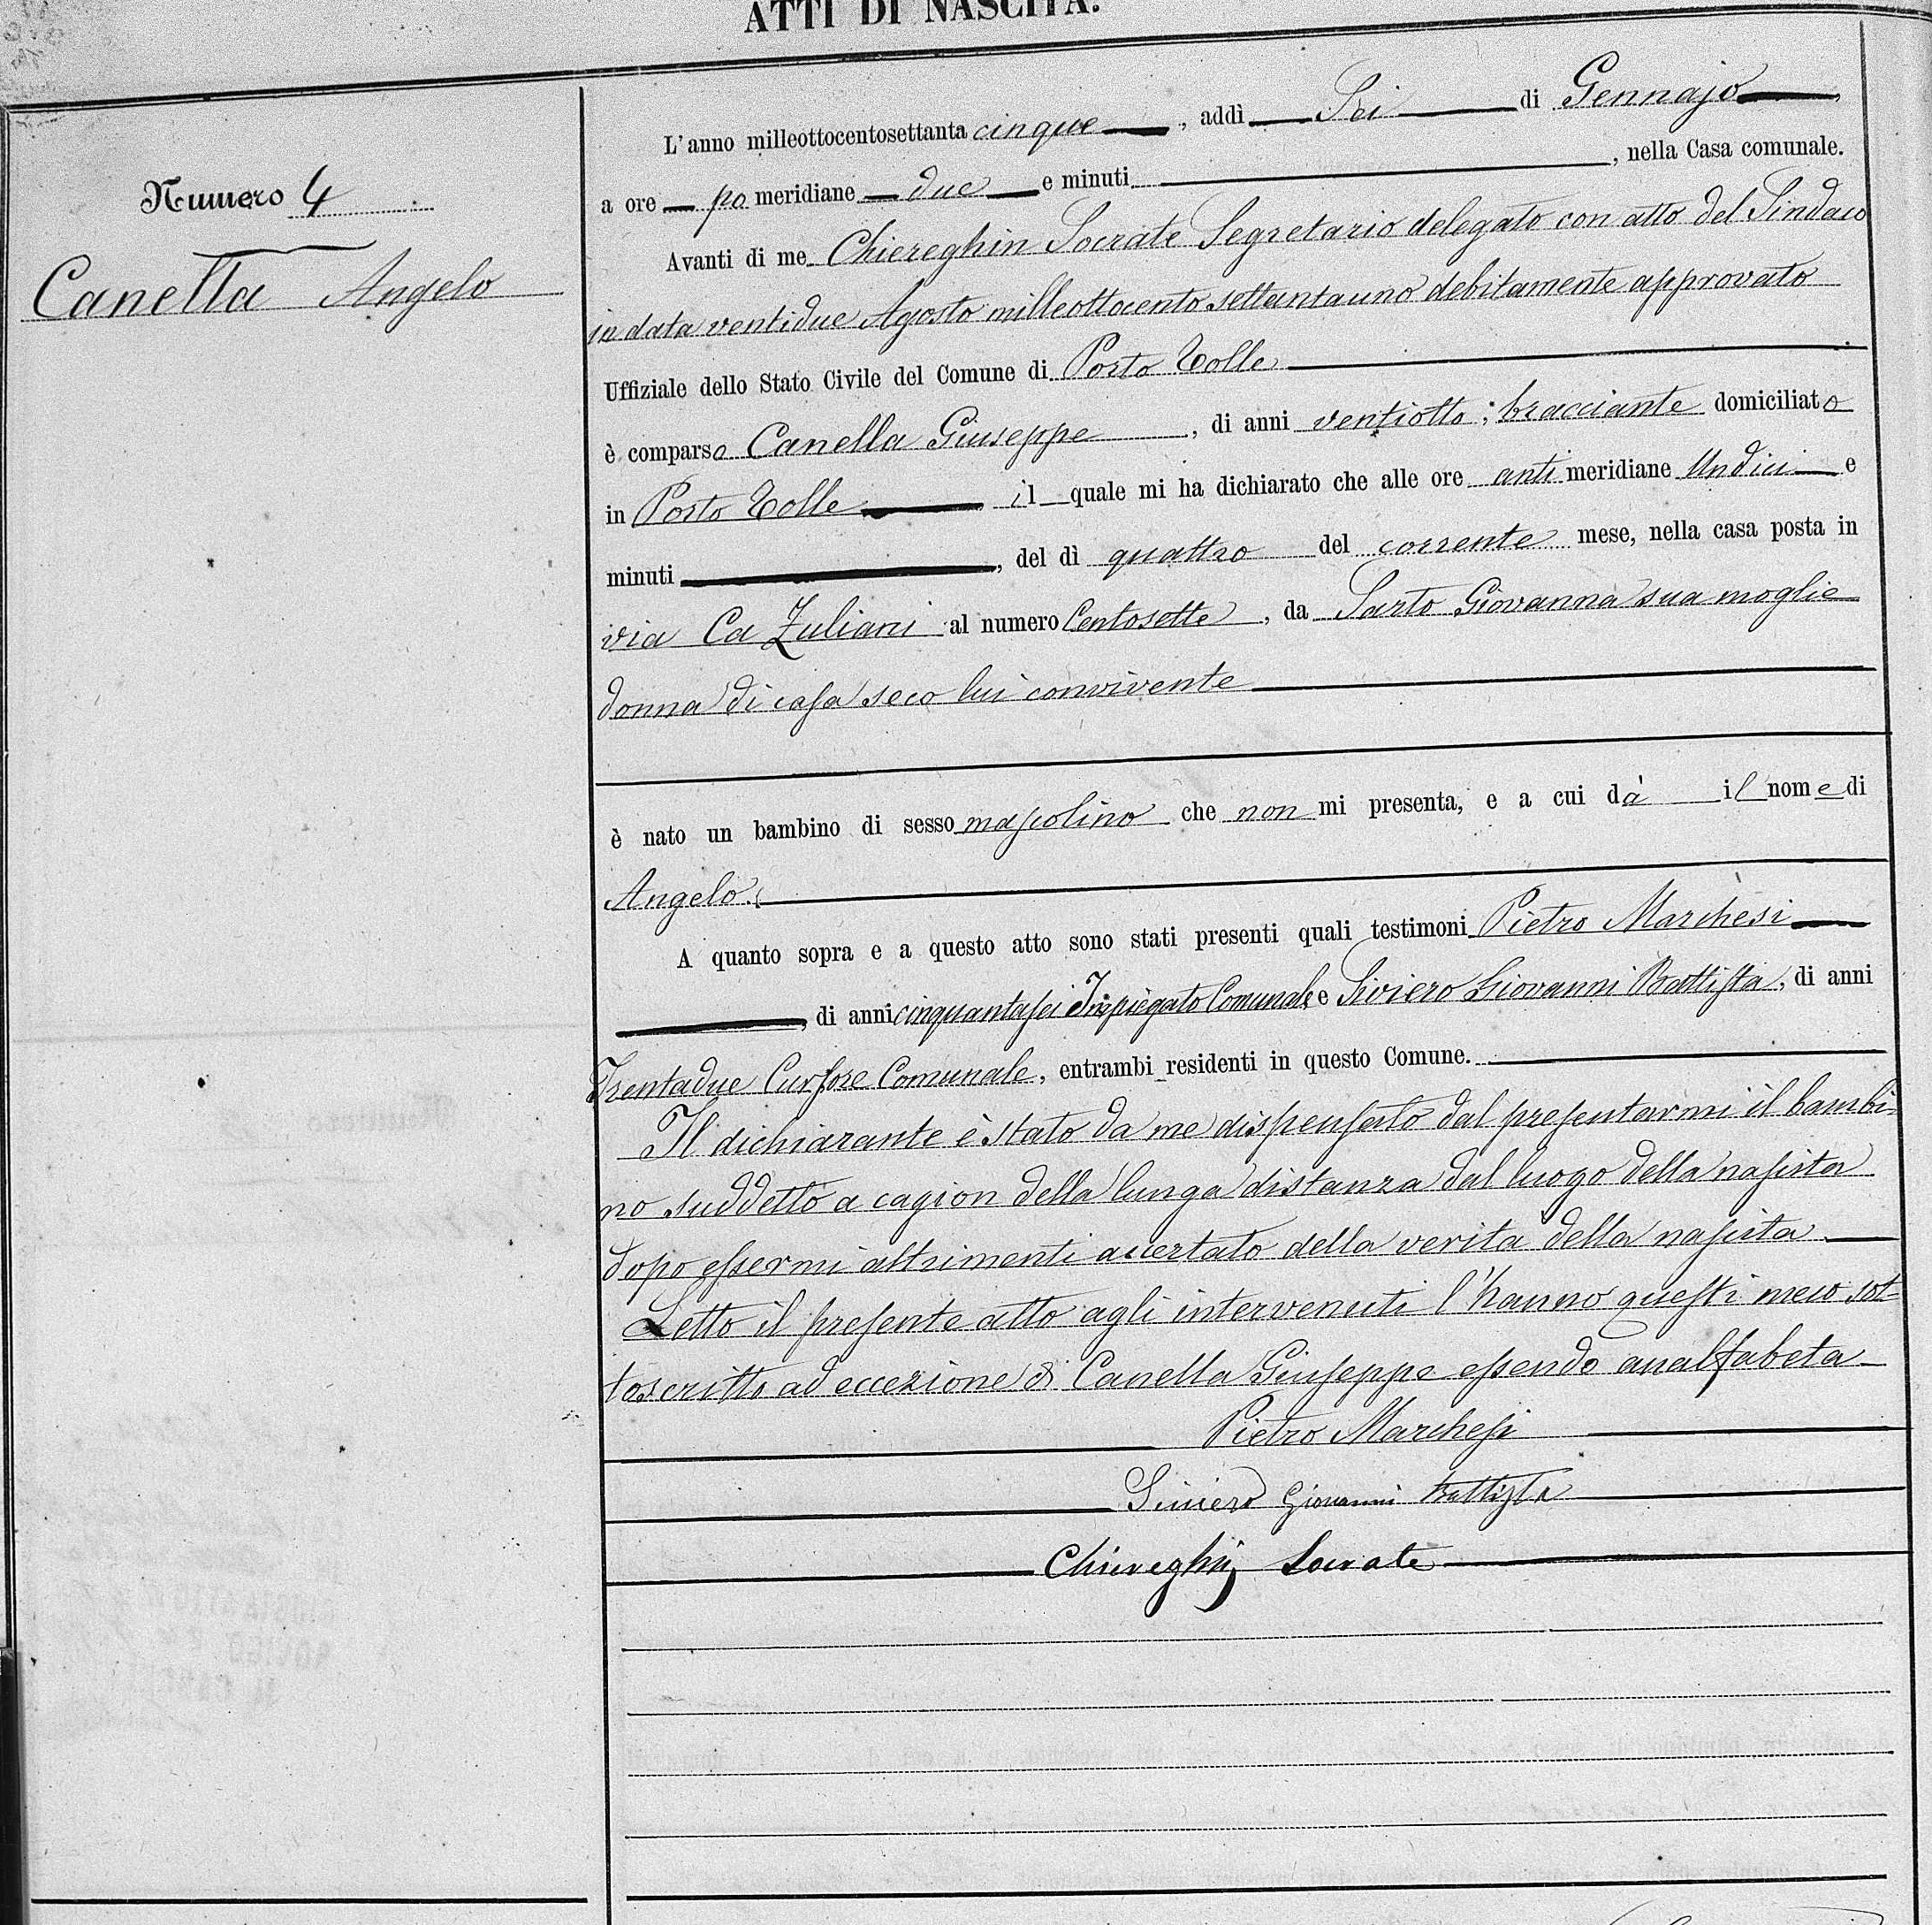 ATTI DI NASCITA.
Numero 4
Canella Angelo
L'anno milleottocentosettanta cinque, addì Sei di Gennajo,
a ore po meridiane due e minuti, nella Casa comunale.
Avanti di me Chiereghin Socrate Segretario delegato con atto del Sindaco
in data ventidue Agosto milleottocento settantauno debitamente approvato
Uffiziale dello Stato Civile del Comune di Porto Tolle
è comparso Canella Giuseppe, di anni ventiotto; bracciante domiciliato
in Porto Tolle il quale mi ha dichiarato che alle ore anti meridiane Undici e
minuti, del dì quattro del corrente mese, nella casa posta in
via Ca Zuliani al numero Centosette, da Sarto Giovanna sua moglie
donna di casa seco lui convivente
è nato un bambino di sesso mascolino che non mi presenta, e a cui dà il nome di
Angelo.
A quanto sopra e a questo atto sono stati presenti quali testimoni Pietro Marchesi
, di anni cinquantasei Impiegato Comunale e Siviero Giovanni Battista, di anni
Trentadue Cursore Comunale, entrambi residenti in questo Comune.
Il dichiarante è stato da me dispensato dal presentarmi il bambi=
no suddetto a cagion della lunga distanza dal luogo della nascita
dopo essermi altrimenti accertato della verità della nascita.
Letto il presente atto agli intervenuti l'hanno questi meco sot-
toscritto ad eccezione di Canella Giuseppe essendo analfabeta
Pietro Marchesi
Siviero Giovanni Battista
Chiereghin Socrate